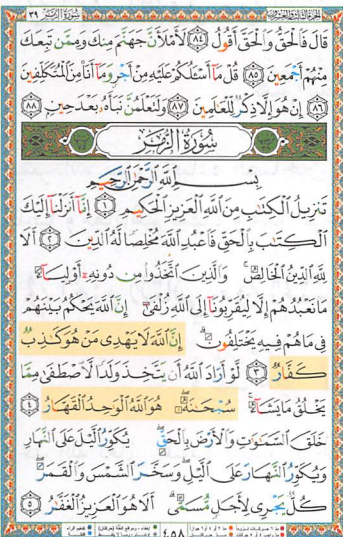 الجزء الثالث والعشرون سورة الزمر ٣٩
قَالَ فَالْحَقُّ وَالْحَقَّ أَقُولُ ٨٤ لَأَمْلَأَنَّ جَهَنَّمَ مِنكَ وَمِمَّن تَبِعَكَ
مِنْهُمْ أَجْمَعِينَ ٨٥ قُلْ مَآ أَسْـَٔلُكُمْ عَلَيْهِ مِنْ أَجْرٍ وَمَآ أَنَا۠ مِنَ الْمُتَكَلِّفِينَ
٨٦ إِنْ هُوَ إِلَّا ذِكْرٌ لِّلْعَالَمِينَ ٨٧ وَلَتَعْلَمُنَّ نَبَأَهُۥ بَعْدَ حِينٍۭ ٨٨
سُورَةُ الزُّمَرِ
بِسْمِ اللَّهِ الرَّحْمَٰنِ الرَّحِيمِ
تَنزِيلُ الْكِتَٰبِ مِنَ اللَّهِ الْعَزِيزِ الْحَكِيمِ ١ إِنَّآ أَنزَلْنَآ إِلَيْكَ
الْكِتَٰبَ بِالْحَقِّ فَاعْبُدِ اللَّهَ مُخْلِصًا لَّهُ الدِّينَ ٢ أَلَا
لِلَّهِ الدِّينُ الْخَالِصُ ۚ وَالَّذِينَ اتَّخَذُوا۟ مِن دُونِهِۦٓ أَوْلِيَآءَ
مَا نَعْبُدُهُمْ إِلَّا لِيُقَرِّبُونَآ إِلَى اللَّهِ زُلْفَىٰٓ إِنَّ اللَّهَ يَحْكُمُ بَيْنَهُمْ
فِى مَا هُمْ فِيهِ يَخْتَلِفُونَ ۗ إِنَّ اللَّهَ لَا يَهْدِى مَنْ هُوَ كَٰذِبٌ
كَفَّارٌ ٣ لَّوْ أَرَادَ اللَّهُ أَن يَتَّخِذَ وَلَدًا لَّاصْطَفَىٰ مِمَّا
يَخْلُقُ مَا يَشَآءُ ۚ سُبْحَٰنَهُۥ ۖ هُوَ اللَّهُ الْوَٰحِدُ الْقَهَّارُ ٤
خَلَقَ السَّمَٰوَٰتِ وَالْأَرْضَ بِالْحَقِّ ۖ يُكَوِّرُ الَّيْلَ عَلَى النَّهَارِ
وَيُكَوِّرُ النَّهَارَ عَلَى الَّيْلِ ۖ وَسَخَّرَ الشَّمْسَ وَالْقَمَرَ ۖ
كُلٌّ يَجْرِى لِأَجَلٍ مُّسَمًّى ۗ أَلَا هُوَ الْعَزِيزُ الْغَفَّٰرُ ٥
٤٥٨